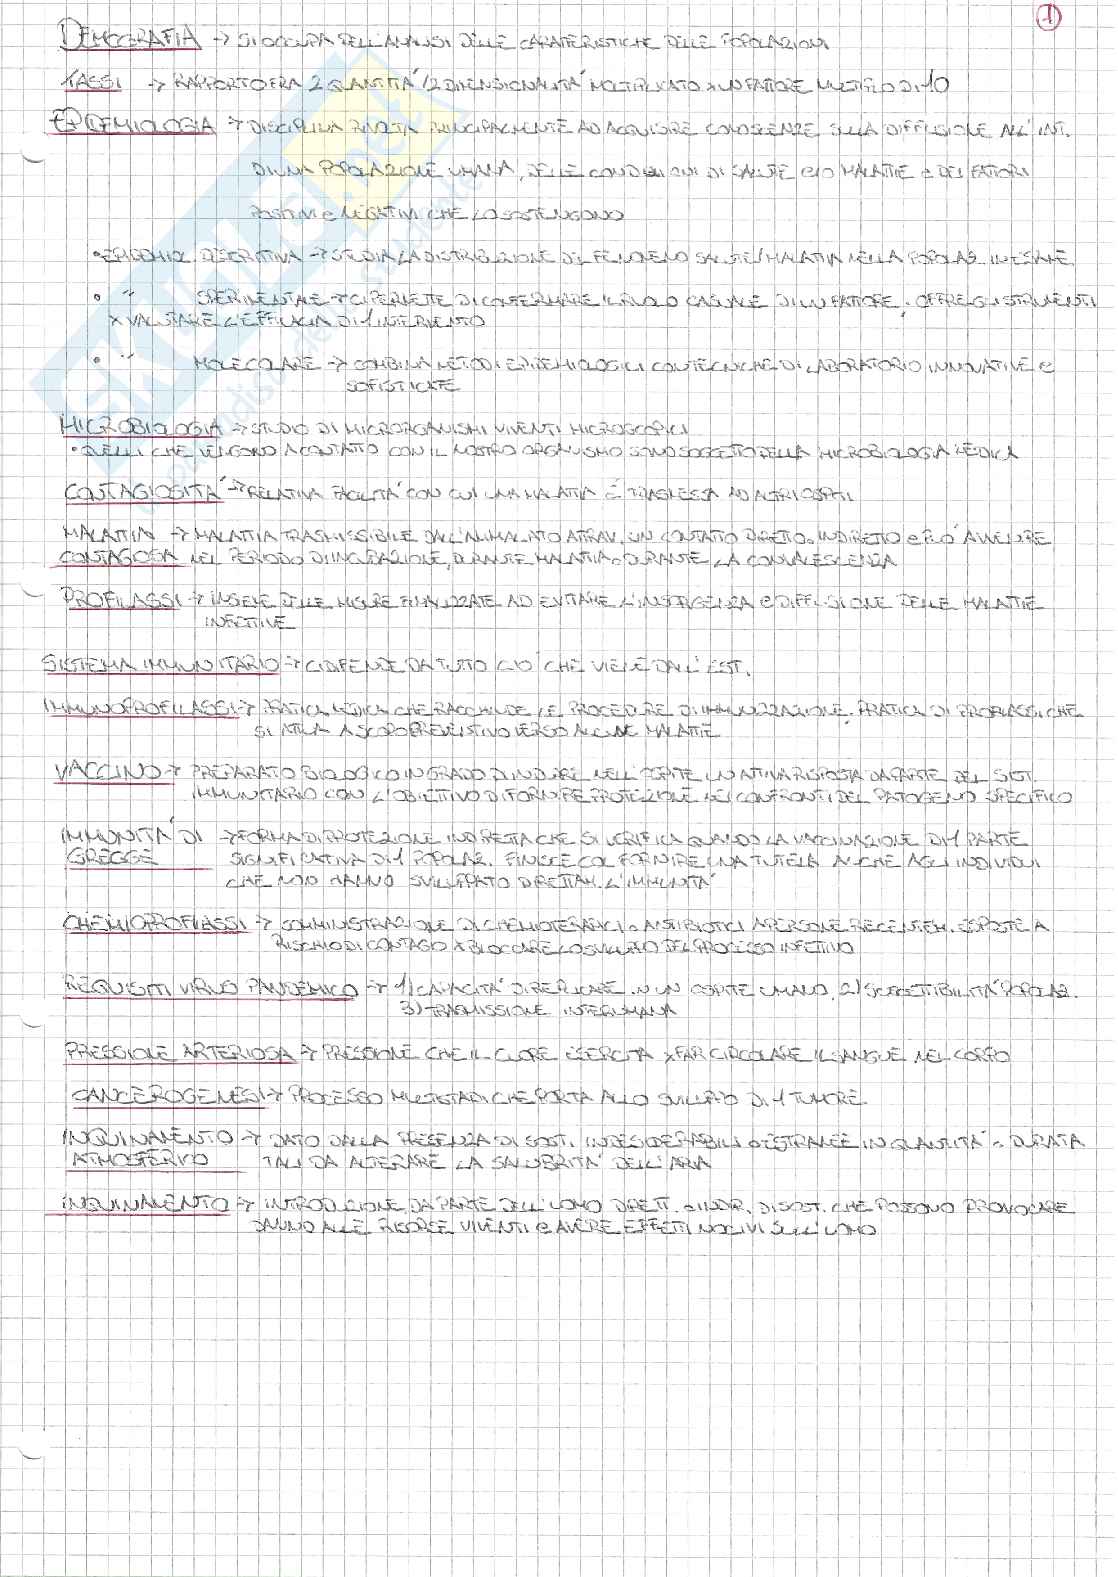 1
DEMOGRAFIA → SI OCCUPA DELL'ANALISI DELLE CARATTERISTICHE DELLE POPOLAZIONI
TASSI → RAPPORTO FRA 2 QUANTITA'/2 DIMENSIONALITA' MOLTIPLICATO x UN FATTORE MULTIPLO DI 10
EPIDEMIOLOGIA → DISCIPLINA RIVOLTA PRINCIPALMENTE AD ACQUISIRE CONOSCENZE SULLA DIFFUSIONE ALL'INT.
DI UNA POPOLAZIONE UMANA, DELLE CONDIZIONI DI SALUTE e/o MALATTIE e DEI FATTORI
POSITIVI e NEGATIVI CHE LO SOSTENGONO
• EPIDEMIOL. DESCRITTIVA → STUDIA LA DISTRIBUZIONE DEL FENOMENO SALUTE/MALATTIA NELLA POPOLAZ. IN ESAME.
• " SPERIMENTALE → CI PERMETTE DI CONFERMARE IL RUOLO CASUALE DI UN FATTORE, OFFRE GLI STRUMENTI
x VALUTARE L'EFFICACIA DI 1 INTERVENTO
• " MOLECOLARE → COMBINA METODI EPIDEMIOLOGICI CON TECNICHE DI LABORATORIO INNOVATIVE e
SOFISTICATE
MICROBIOLOGIA → STUDIO DI MICRORGANISMI VIVENTI MICROSCOPICI
• QUELLI CHE VENGONO A CONTATTO CON IL NOSTRO ORGANISMO SONO SOGGETTO DELLA MICROBIOLOGIA MEDICA
CONTAGIOSITA' → RELATIVA FACILITA' CON CUI UNA MALATTIA È TRASMESSA AD ALTRI OSPITI
MALATTIA → MALATTIA TRASMISSIBILE DALL'AMMALATO ATTRAV. UN CONTATTO DIRETTO o INDIRETTO e PUO' AVVENIRE
CONTAGIOSA NEL PERIODO DI INCUBAZIONE, DURANTE MALATTIA o DURANTE LA CONVALESCENZA
PROFILASSI → INSIEME DELLE MISURE FINALIZZATE AD EVITARE L'INSORGENZA e DIFFUSIONE DELLE MALATTIE
INFETTIVE
SISTEMA IMMUNITARIO → CI DIFENDE DA TUTTO CIO' CHE VIENE DALL'EST.
IMMUNOPROFILASSI → PRATICA MEDICA CHE RACCHIUDE LE PROCEDURE DI IMMUNIZZAZIONE. PRATICA DI PROFILASSI CHE
SI ATTUA A SCOPO PREVENTIVO VERSO ALCUNE MALATTIE
VACCINO → PREPARATO BIOLOGICO IN GRADO DI INDURRE NELL'OSPITE UN'ATTIVA RISPOSTA DA PARTE DEL SIST.
IMMUNITARIO CON L'OBIETTIVO DI FORNIRE PROTEZIONE NEI CONFRONTI DEL PATOGENO SPECIFICO
IMMUNITA' DI → FORMA DI PROTEZIONE INDIRETTA CHE SI VERIFICA QUANDO LA VACCINAZIONE DI 1 PARTE
GREGGE SIGNIFICATIVA DI 1 POPOLAZ. FINISCE COL FORNIRE UNA TUTELA ANCHE AGLI INDIVIDUI
CHE NON HANNO SVILUPPATO DIRETTAM. L'IMMUNITA'
CHEMIOPROFILASSI → SOMMINISTRAZIONE DI CHEMIOTERAPICI o ANTIBIOTICI A PERSONE RECENTEM. ESPOSTE A
RISCHIO DI CONTAGIO x BLOCCARE LO SVILUPPO DEL PROCESSO INFETTIVO
REQUISITI VIRUS PANDEMICO → 1) CAPACITA' DI REPLICARE IN UN OSPITE UMANO 2) SUSCETTIBILITA' POPOLAZ.
3) TRASMISSIONE INTERUMANA
PRESSIONE ARTERIOSA → PRESSIONE CHE IL CUORE ESERCITA x FAR CIRCOLARE IL SANGUE NEL CORPO
CANCEROGENESI → PROCESSO MULTISTADI CHE PORTA ALLO SVILUPPO DI 1 TUMORE
INQUINAMENTO → DATO DALLA PRESENZA DI SOST. INDESIDERABILI o ESTRANEE IN QUANTITA' o DURATA
ATMOSFERICO TALI DA ALTERARE LA SALUBRITA' DELL'ARIA
INQUINAMENTO → INTRODUZIONE DA PARTE DELL'UOMO DIRETT. o INDIR. DI SOST. CHE POSSONO PROVOCARE
DANNO ALLE RISORSE VIVENTI e AVERE EFFETTI NOCIVI SULL'UOMO